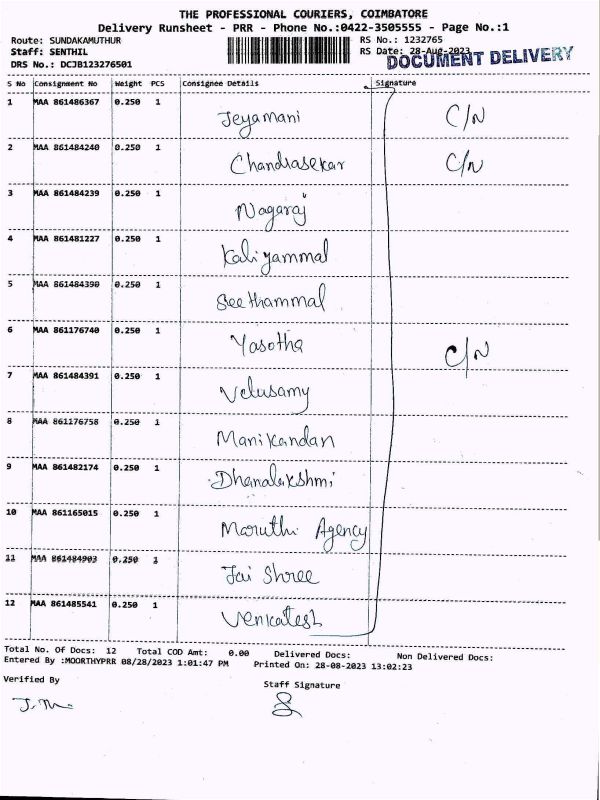 THE PROFESSIONAL COURIERS, COIMBATORE
Delivery Runsheet - PRR - Phone No.:0422-3505555 - Page No.:1
Route: SUNDAKAMUTHUR RS No.: 1232765
Staff: SENTHIL RS Date: 28-Aug-2023
DOCUMENT DELIVERY
DRS No.: DCJB123276501
S No Consignment No Weight PCS Consignee Details Signature
1 MAA 861486367 0.250 1 Jeyamani C/N
2 MAA 861484240 0.250 1 Chandrasekar C/N
3 MAA 861484239 0.250 1 Nagaraj
4 MAA 861481227 0.250 1 Kaliyammal
5 MAA 861484390 0.250 1 Seethammal
6 MAA 861176740 0.250 1 Yasotha C/N
7 MAA 861484391 0.250 1 Velusamy
8 MAA 861176758 0.250 1 Manikandan
9 MAA 861482174 0.250 1 Dhanalakshmi
10 MAA 861165015 0.250 1 Maruthi Agency
11 MAA 861484903 0.250 1 Jai Shree
12 MAA 861485541 0.250 1 Venkatesh
Total No. Of Docs: 12 Total COD Amt: 0.00 Delivered Docs: Non Delivered Docs:
Entered By :MOORTHYPRR 08/28/2023 1:01:47 PM Printed On: 28-08-2023 13:02:23
Verified By Staff Signature